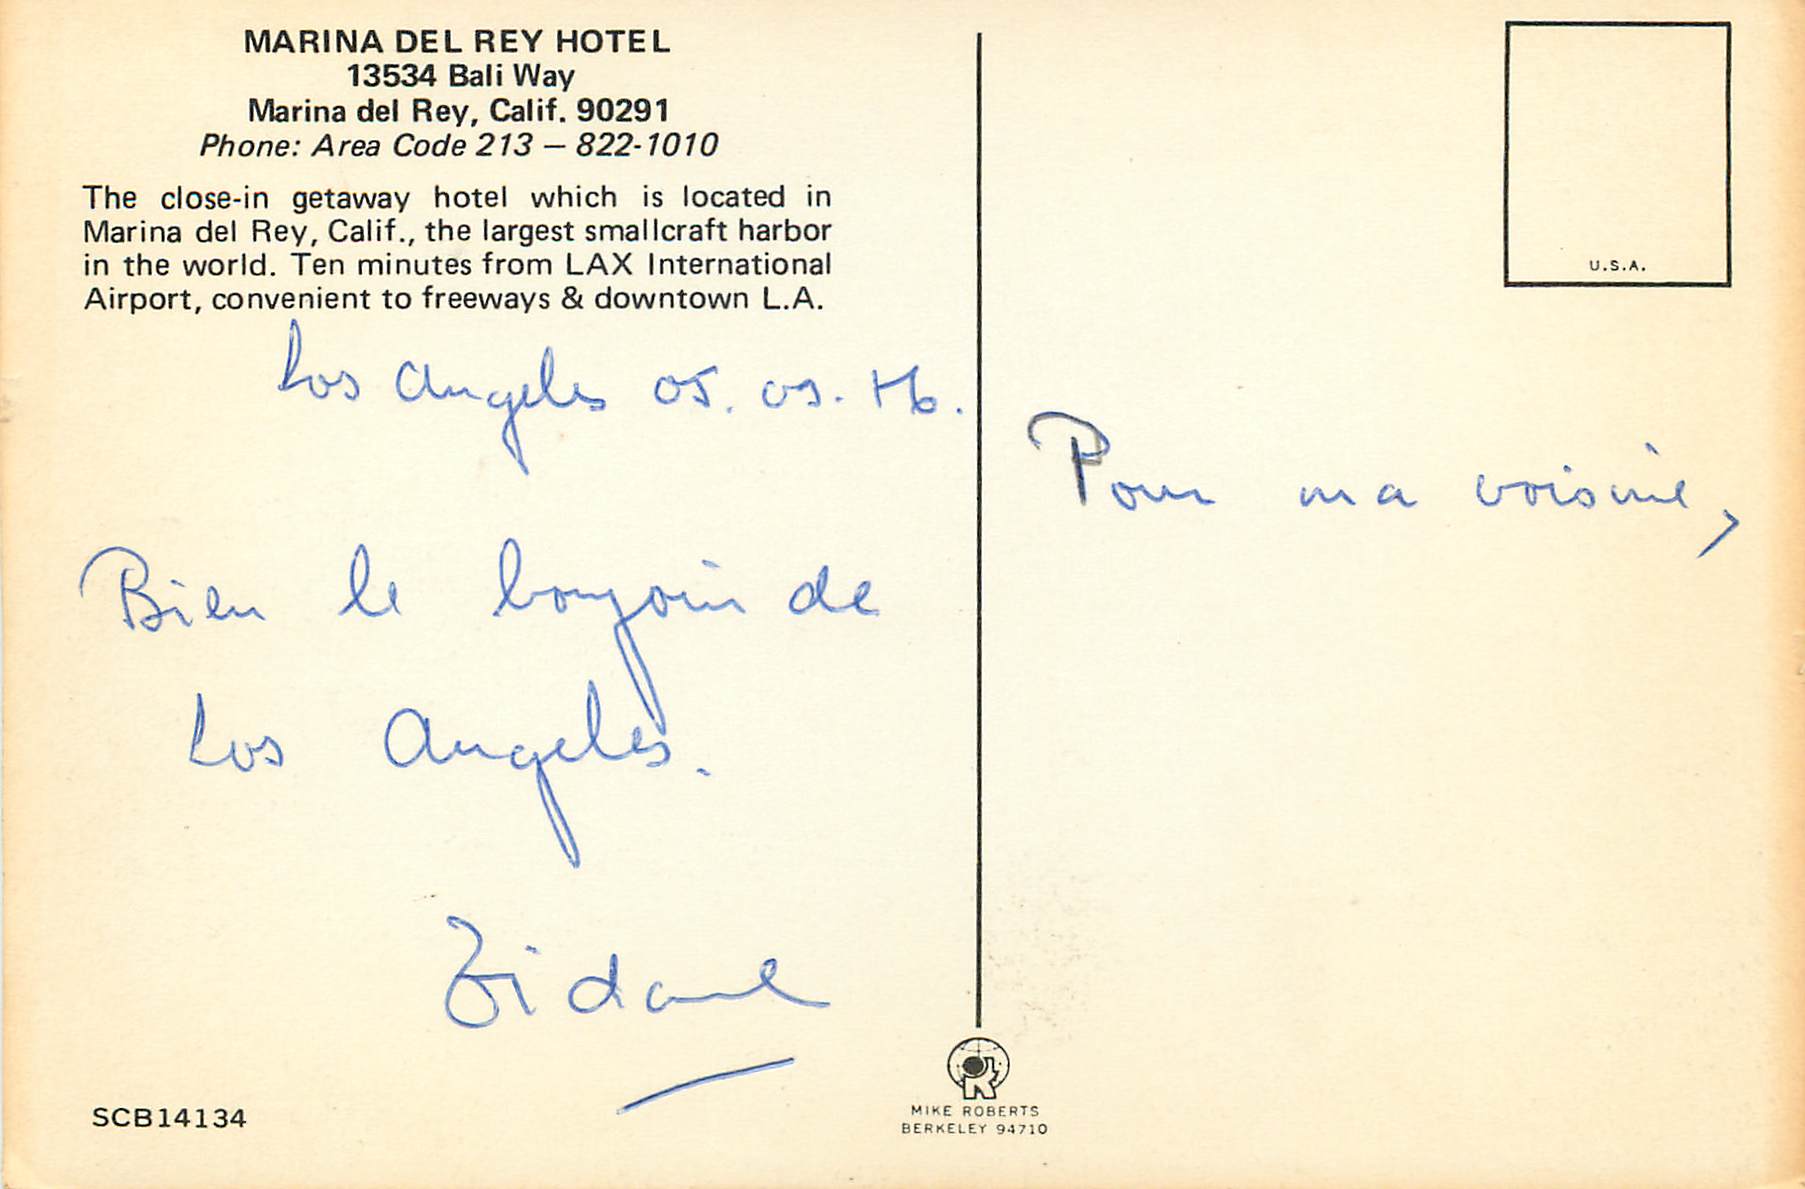 MARINA DEL REY HOTEL
13534 Bali Way
Marina del Rey, Calif. 90291
Phone: Area Code 213 – 822-1010
The close-in getaway hotel which is located in
Marina del Rey, Calif., the largest smallcraft harbor
in the world. Ten minutes from LAX International
Airport, convenient to freeways & downtown L.A.
Los Angeles 05. 09. 76.
Bien le bonjour de
Los Angeles.
Zidane
SCB14134
U.S.A.
Pour ma voisine,
MIKE ROBERTS
BERKELEY 94710